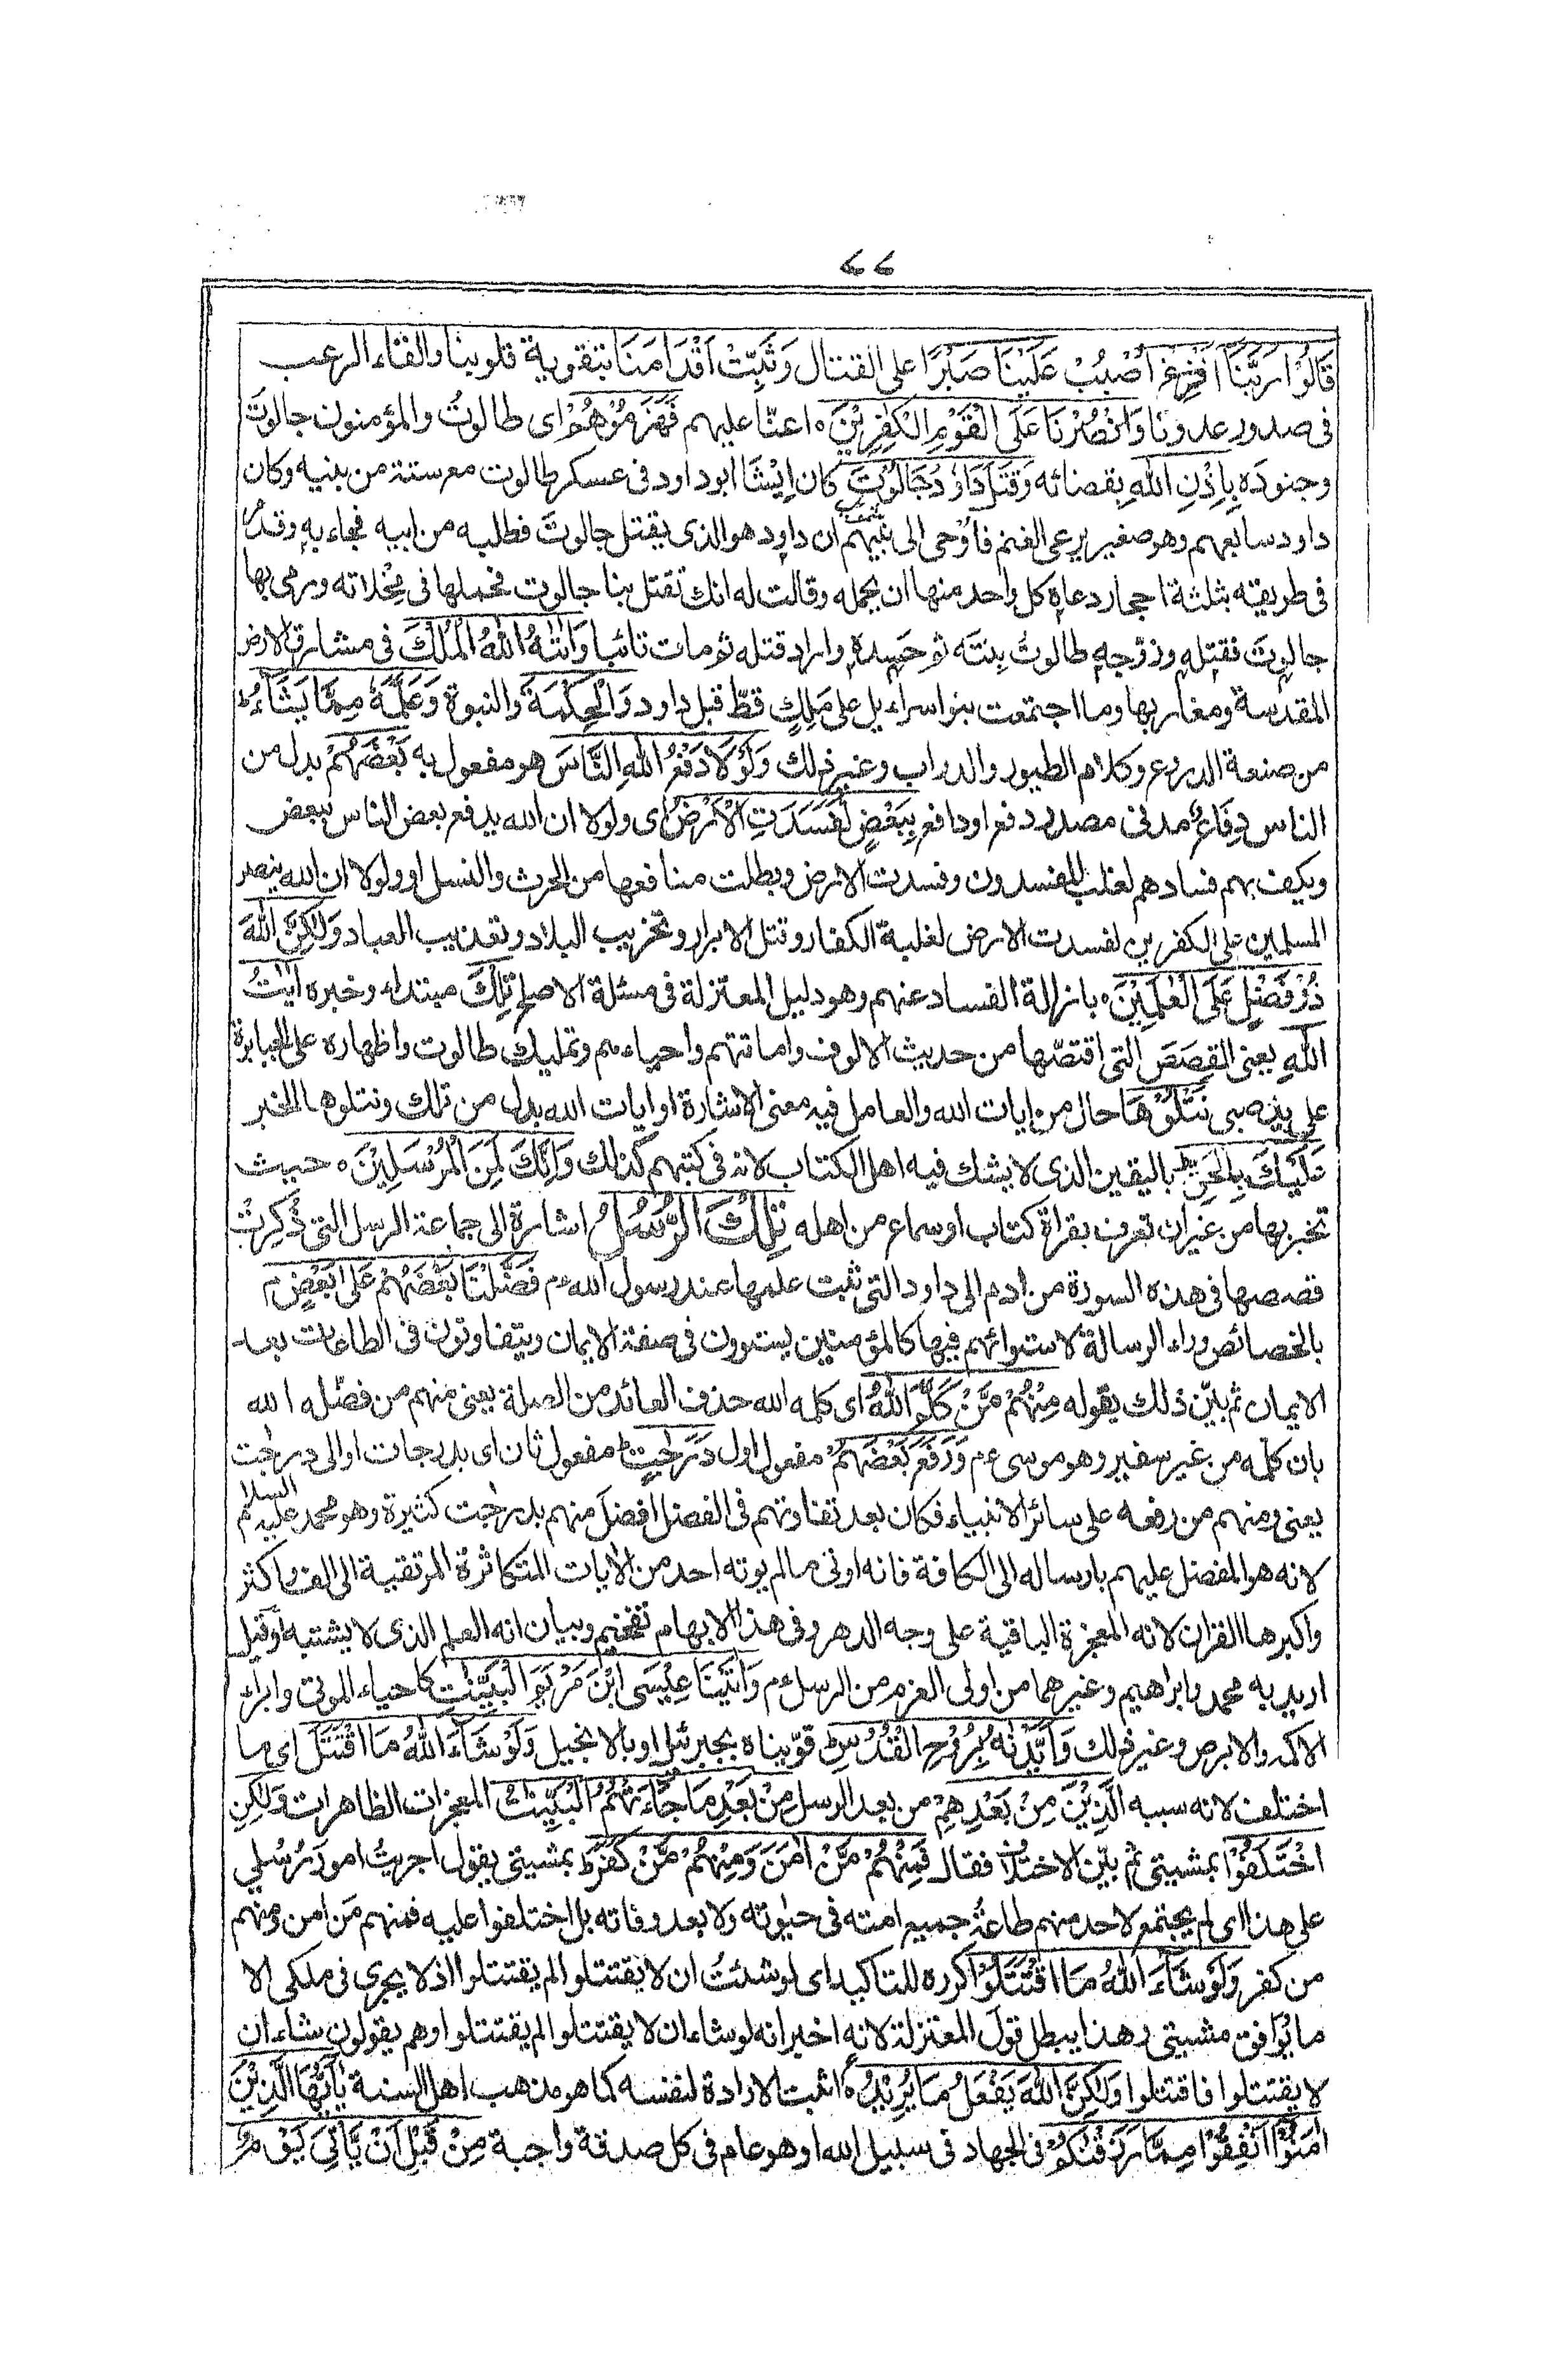 ٤٤
قَالُوْا رَبَّنَا اَفْرِغْ اصْبُبْ عَلَيْنَا صَبْرًا على القتال وَثَبِّتْ اَقْدَامَنَا بتقوية قلوبنا والقاء الرعب
فى صدور عدونا وَانْصُرْنَا عَلَى الْقَوْمِ الْكٰفِرِيْنَ ٥ اعنّا عليهم فَهَزَمُوْهُمْ اى طالوتُ والمؤمنون جالوتَ
وجنودَه بِاِذْنِ اللهِ بقضائه وَقَتَلَ دَاوٗدُ جَالُوْتَ كان اِيْشَا ابو داود فى عسكر طالوت مع ستة من بنيه وكان
داود سابعهم وهو صغير يرعى الغنم فاُوْحى الى نبيّهم ان داود هو الذى يقتل جالوتَ فطلبه من ابيه فجاء به وقد مر
فى طريقه بثلثة احجار دعاه كل واحد منها ان يحمله وقالت له انك تقتل بنا جالوت فحملها فى مِخْلاته ورمى بها
جالوتَ فقتله وزوّجه طالوتُ بِنتَه ثم حَسِده واراد قتله ثم مات تائبا وَاٰتٰهُ اللهُ الْمُلْكَ فى مشارق الارض
المقدسة ومغاربها وما اجتمعت بنو اسراءيل على مَلِكٍ قطّ قبل داود وَالْحِكْمَةَ والنبوة وَعَلَّمَهٗ مِمَّا يَشَآءُ ط
من صنعة الدروع وكلام الطيور والدواب وغير ذلك وَلَوْلَا دَفْعُ اللهِ النَّاسَ هو مفعول به بَعْضَهُمْ بدل من
الناس دِفَاعُ مدنى مصدر دفع او دافع بِبَعْضٍ لَّفَسَدَتِ الْاَرْضُ اى ولولا ان الله يدفع بعض الناس ببعض
ويكف بهم فسادهم لغلب المفسدون وفسدت الارض وبطلت منافعها من الحرث والنسل او ولولا ان الله ينصر
المسلمين على الكفرين لفسدت الارض لغلبة الكفار وقتل الابرار وتخريب البلاد وتعذيب العباد وَلٰكِنَّ اللهَ
ذُوْ فَضْلٍ عَلَى الْعٰلَمِيْنَ ٥ بازالة الفساد عنهم وهو دليل المعتزلة فى مسئلة الاصلح تِلْكَ مبتداء وخبره اٰيٰتُ
اللهِ يعنى القِصَصَ التى اقتصّها من حديث الالوف واماتتهم واحياءهم وتمليك طالوت واظهاره على الجبابرة
على يد صبى نَتْلُوْهَا حال من ايات الله والعامل فيه معنى الاشارة او ايات الله بدل من تلك ونتلوها الخبر
عَلَيْكَ بِالْحَقِّ ط باليقين الذى لا يشك فيه اهل الكتاب لانه فى كتبهم كذلك وَاِنَّكَ لَمِنَ الْمُرْسَلِيْنَ ٥ حيث
تخبر بها من غير ان تعرف بقراة كتاب او سماع من اهله تِلْكَ الرُّسُلُ اشارة الى جماعة الرسل التى ذُكِرتْ
قصصها فى هذه السورة من ادم الى داود التى ثبت علمها عند رسول الله ءم فَضَّلْنَا بَعْضَهُمْ عَلٰى بَعْضٍ م
بالخصائص وراء الرسالة لاستوائهم فيها كالمؤمنين يستوون فى صفة الايمان ويتفاوتون فى الطاعات بعد
الايمان ثم بيّن ذلك بقوله مِنْهُمْ مَّنْ كَلَّمَ اللهُ اى كلمه الله حذف العائد من الصلة يعنى منهم من فضّله الله
بان كلّمه من غير سفير وهو موسى ءم وَرَفَعَ بَعْضَهُمْ مفعول اول دَرَجٰتٍ ط مفعول ثان اى بدرجات او الى درجٰت
يعنى ومنهم من رفعه على سائر الانبياء فكان بعد تفاوتهم فى الفضل افضلَ منهم بدرجٰت كثيرة وهو محمد عليه السلام
لانه هو المفضل عليهم بارساله الى الكافة فانه اوتى ما لم يوته احد من الايات المتكاثرة المرتقية الى الف واكثر
واكبرها القران لانه المعجزة الباقية على وجه الدهر وفى هذا الابهام تفخيم وبيان انه العلم الذى لا يشتبه او قيل
اريد به محمد وابراهيم وغيرهما من اولى العزم من الرسل ءم وَاٰتَيْنَا عِيْسَى ابْنَ مَرْيَمَ الْبَيِّنٰتِ كاحياء الموتى وابراء
الاكمه والابرص وغير ذلك وَاَيَّدْنٰهُ بِرُوْحِ الْقُدُسِ ط قوّيناه بجبرئيل او بالانجيل وَلَوْ شَآءَ اللهُ مَا اقْتَتَلَ اى ما
اختلف لانه سببه الَّذِيْنَ مِنْ بَعْدِهِمْ من بعد الرسل مِنْ بَعْدِ مَا جَآءَتْهُمُ الْبَيِّنٰتُ المعجزات الظاهرات وَلٰكِنِ
اخْتَلَفُوْا بمشيتى ثم بيّن الاختلاف فقال فَمِنْهُمْ مَّنْ اٰمَنَ وَمِنْهُمْ مَّنْ كَفَرَ ط بمشيتى يقول اجريتُ امور رُسُلي
على هذا اى لم يجتمع لاحد منهم طاعةُ جميع امته فى حيٰوته ولا بعد وفاته بل اختلفوا عليه فمنهم مَن امن ومنهم
من كفر وَلَوْ شَآءَ اللهُ مَا اقْتَتَلُوْا كرره للتاكيد اى لو شئتُ ان لا يقتتلوا لم يقتتلوا اذ لا يجرى فى ملكى الا
ما يُوافق مشيتى وهذا يبطل قولَ المعتزلة لانه اخبر انه لو شاء ان لا يقتتلوا لم يقتتلوا وهم يقولون شاء ان
لا يقتتلوا فاقتتلوا وَلٰكِنَّ اللهَ يَفْعَلُ مَا يُرِيْدُ ٥ اثبت الارادة لنفسه كما هو مذهب اهل السنة يٰاَيُّهَا الَّذِيْنَ
اٰمَنُوْا اَنْفِقُوْا مِمَّا رَزَقْنٰكُمْ فى الجهاد فى سبيل الله او هو عام فى كل صدقة واجبة مِنْ قَبْلِ اَنْ يَّاْتِيَ يَوْمٌ